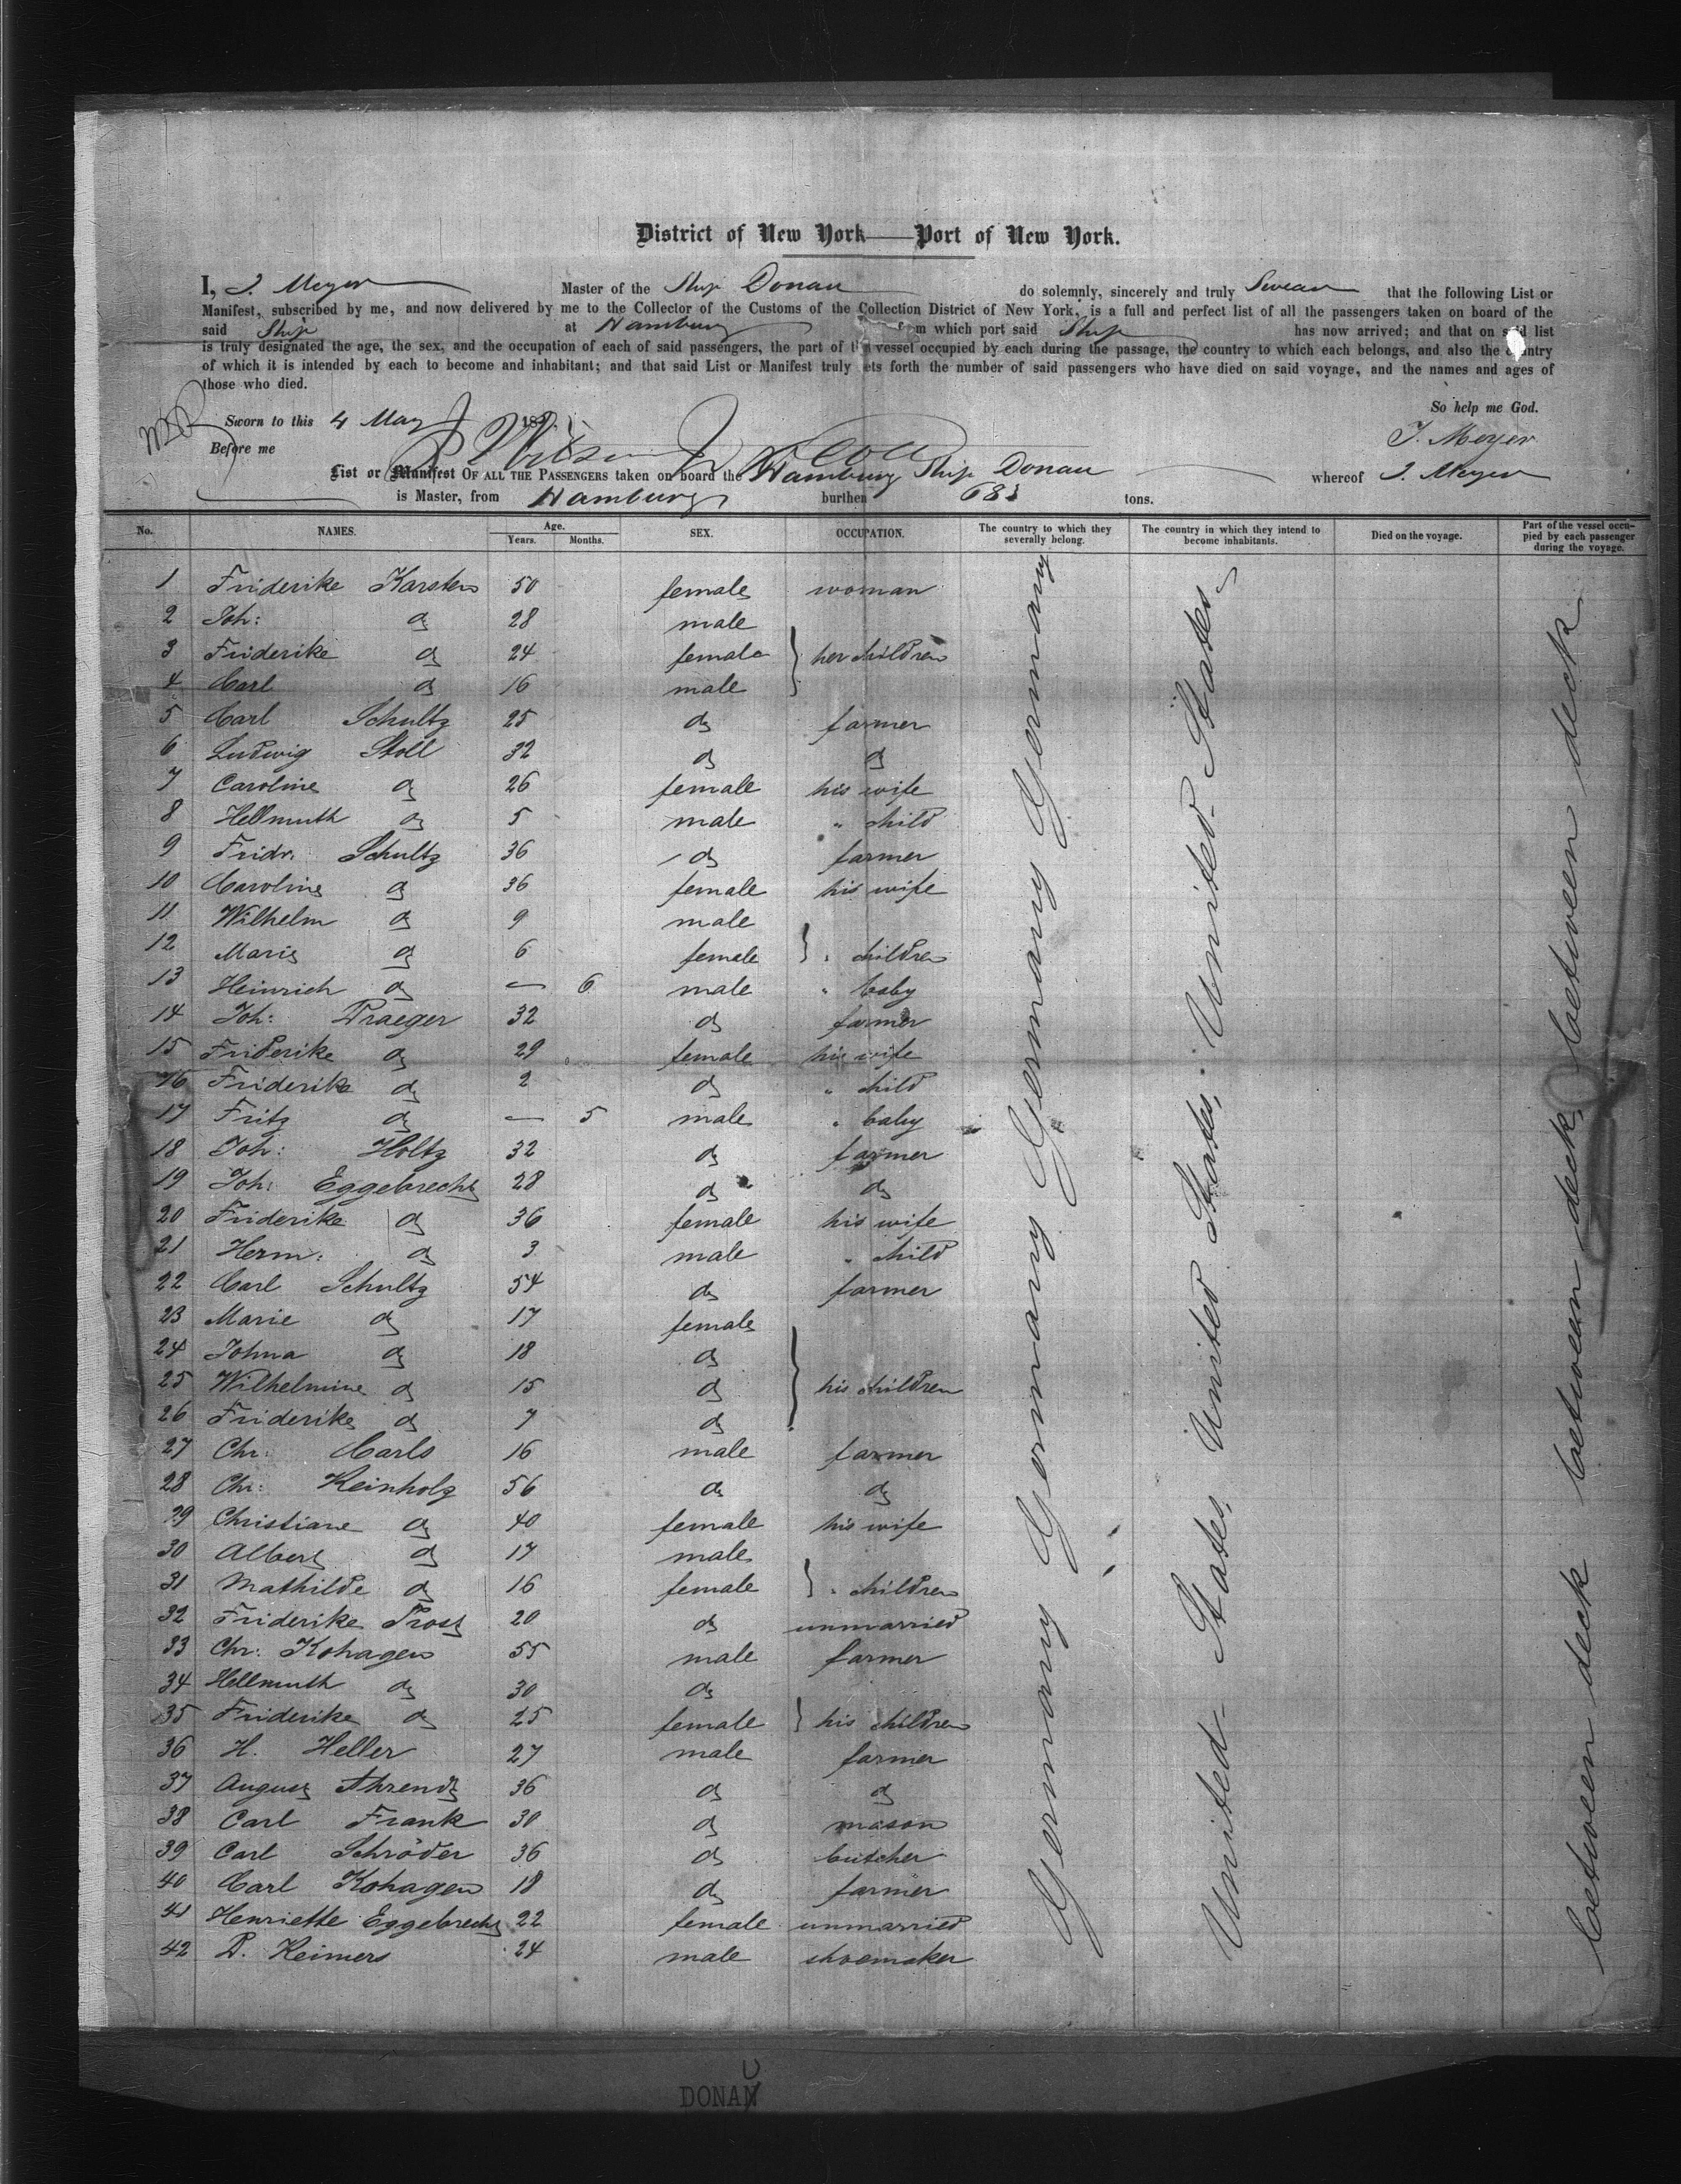 District of New York — Port of New York.
I, J. Meyer Master of the Ship Donau do solemnly, sincerely and truly Swear that the following List or
Manifest, subscribed by me, and now delivered by me to the Collector of the Customs of the Collection District of New York, is a full and perfect list of all the passengers taken on board of the
said Ship at Hamburg from which port said Ship has now arrived; and that on said list
is truly designated the age, the sex, and the occupation of each of said passengers, the part of the vessel occupied by each during the passage, the country to which each belongs, and also the country
of which it is intended by each to become and inhabitant; and that said List or Manifest truly sets forth the number of said passengers who have died on said voyage, and the names and ages of
those who died.
So help me God.
Sworn to this 4 May 185
J. Meyer
Before me
List or Manifest OF ALL THE PASSENGERS taken on board the Hamburg Ship Donau whereof J. Meyer
is Master, from Hamburg burthen 683 tons.
No. NAMES. Age. Years. Months. SEX. OCCUPATION. The country to which they severally belong. The country in which they intend to become inhabitants. Died on the voyage. Part of the vessel occupied by each passenger during the voyage.
1 Friderike Karsten 50 female woman
2 Joh: do 28 male
3 Friderike do 24 female } her children
4 Carl do 16 male
5 Carl Schultz 25 do farmer
6 Ludwig Stoll 32 do do
7 Caroline do 26 female his wife
8 Hellmuth do 5 male " child
9 Fridr. Schultz 36 do farmer
10 Caroline do 36 female his wife
11 Wilhelm do 9 male
12 Marie do 6 female } " children
13 Heinrich do — 6 male " baby
14 Joh: Praeger 32 do farmer
15 Friderike do 29 female his wife
16 Friderike do 2 do " child
17 Fritz do — 5 male " baby
18 Joh: Holtz 32 do farmer
19 Joh: Eggebrecht 28 do do
20 Friderike do 36 female his wife
21 Herm: do 3 male " child
22 Carl Schultz 54 do farmer
23 Marie do 17 female
24 Johna do 18 do
25 Wilhelmine do 15 do } his children
26 Friderike do 7 do
27 Chr: Carls 16 male farmer
28 Chr: Reinholz 56 do do
29 Christiane do 40 female his wife
30 Albert do 17 male
31 Mathilde do 16 female } " children
32 Friderike Prost 20 do unmarried
33 Chr: Kohagen 55 male farmer
34 Hellmuth do 30 do
35 Friderike do 25 female } his children
36 H. Heller 27 male farmer
37 August Ahrendt 36 do do
38 Carl Frank 30 do mason
39 Carl Schröder 36 do butcher
40 Carl Kohagen 18 do farmer
41 Henriette Eggebrecht 22 female unmarried
42 P. Reimers 24 male shoemaker
Germany Germany Germany Germany Germany Germany
United States, United States, United States,
between deck between deck, between deck
DONAU